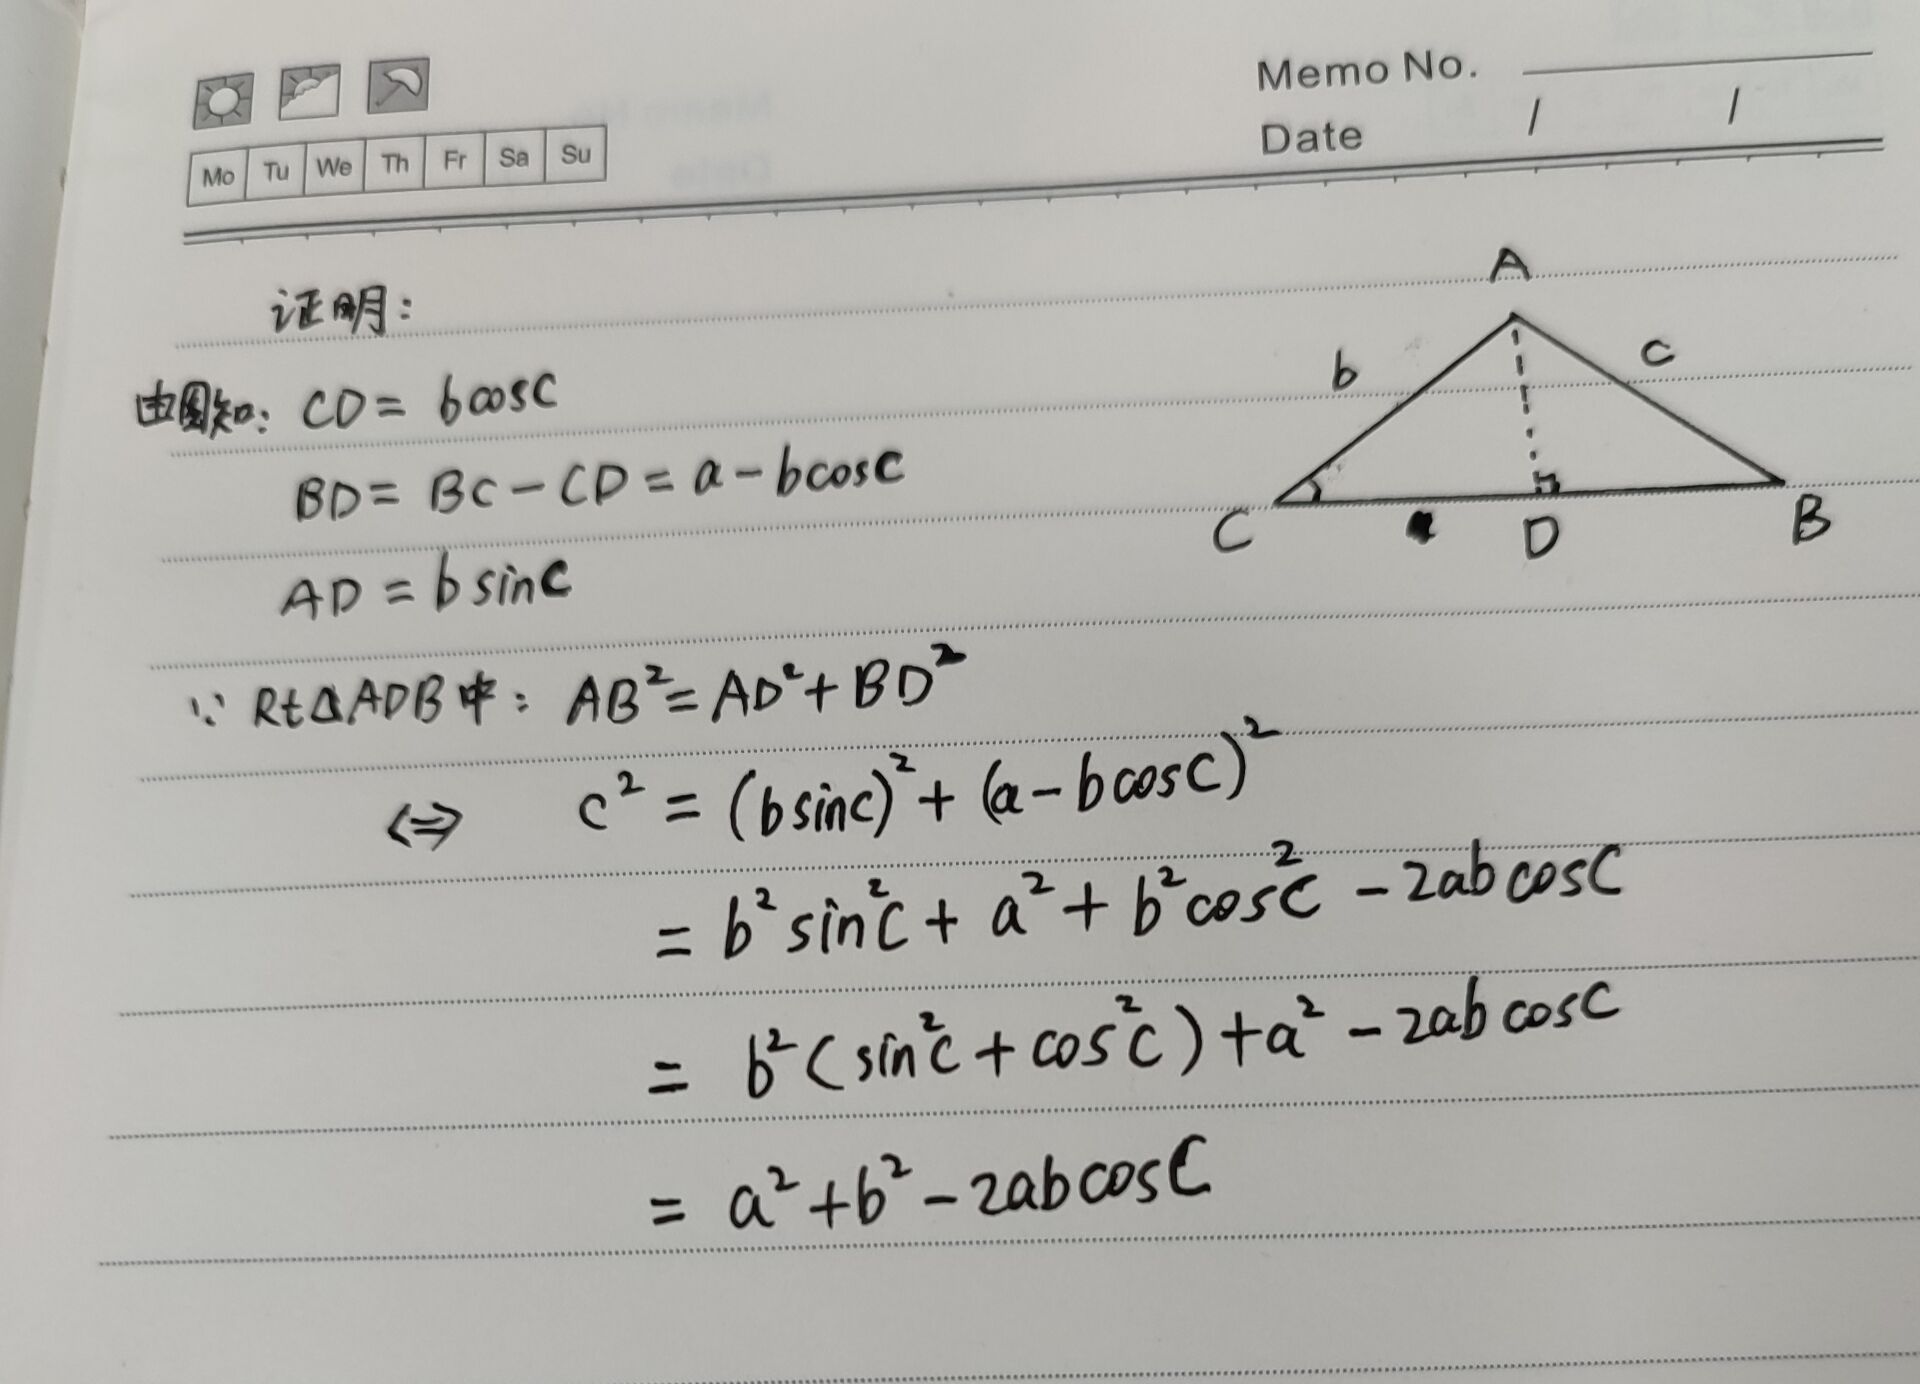 Memo No.
Date / /
Mo Tu We Th Fr Sa Su
证明：
由图知： CD = bcosC
BD = BC - CD = a - bcosC
AD = b sinC
∵ Rt△ADB中： AB² = AD² + BD²
⇔ c² = (b sinC)² + (a - b cosC)²
= b² sin²C + a² + b² cos²C - 2ab cosC
= b² ( sin²C + cos²C ) + a² - 2ab cosC
= a² + b² - 2ab cosC
A
b
c
C
D
B